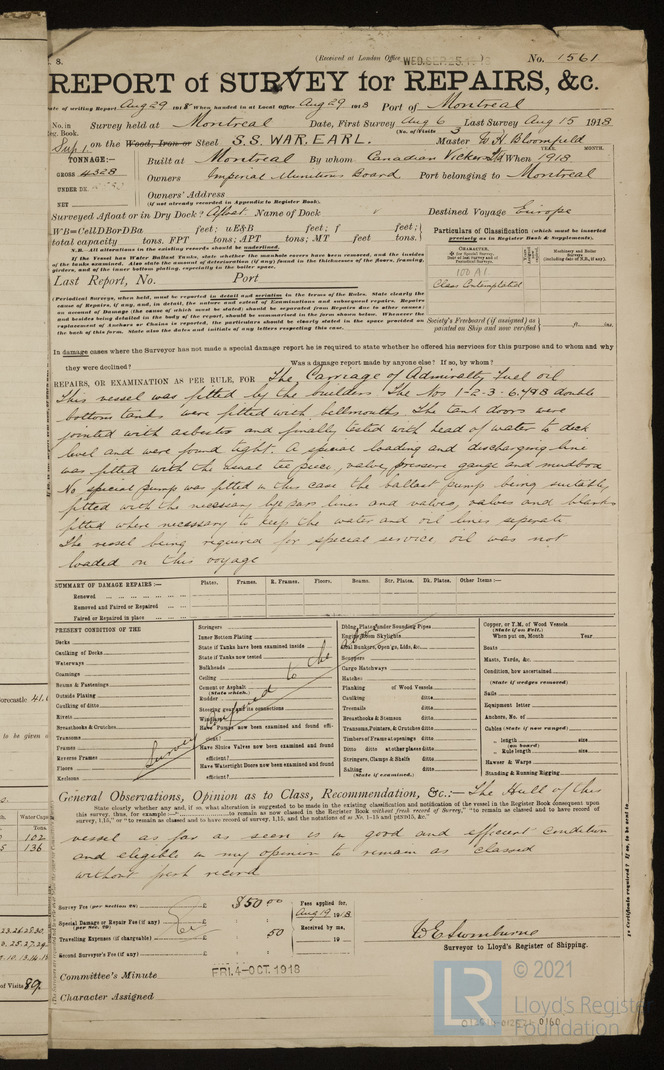 8.
(Received at London Office WED. SEP. 25 1918
No. 1561
REPORT of SURVEY for REPAIRS, &c.
Date of writing Report Aug 29 1918 When handed in at Local Office Aug 29 1918 Port of Montreal
No. in Reg. Book. Survey held at Montreal Date, First Survey Aug 6 Last Survey Aug 15 1918
(No. of Visits 3
Sup 1. on the Wood, Iron or Steel S.S. WAR. EARL. Master W H Bloomfield
TONNAGE:— Built at Montreal By whom Canadian Vickers Ltd When 1918
YEAR. MONTH.
GROSS 4328 Owners Imperial Munitions Board Port belonging to Montreal
UNDER DK.
NET Owners' Address
(if not already recorded in Appendix to Register Book).
Surveyed Afloat or in Dry Dock? Afloat Name of Dock Destined Voyage Europe
WB=CellDBorDBa feet; uE&B feet; f feet;
total capacity tons. FPT tons; APT tons; MT feet tons.
Particulars of Classification (which must be inserted precisely as in Register Book & Supplements).
N.B.—All alterations in the existing records should be underlined.
If the Vessel has Water Ballast Tanks, state whether the manhole covers have been removed, and the insides of the tanks examined. Also state the amount of deterioration (if any) found in the thicknesses of the floors, framing, girders, and of the inner bottom plating, especially in the boiler space.
Last Report, No. Port
100 A1.
Class Contemplated
(Periodical Surveys, when held, must be reported in detail and seriatim in the terms of the Rules. State clearly the cause of Repairs, if any, and, in detail, the nature and extent of Examinations and subsequent repairs. Repairs on account of Damage (the cause of which must be stated) should be separated from Repairs due to other causes; and besides being detailed in the body of the report, should be summarised in the form shown below. Whenever the replacement of Anchors or Chains is reported, the particulars should be clearly stated in the space provided on the back of this form. State also the dates and initials of any letters respecting this case.
Society's Freeboard (if assigned) as painted on Ship and now verified ft. ins.
In damage cases where the Surveyor has not made a special damage report he is required to state whether he offered his services for this purpose and to whom and why
they were declined? Was a damage report made by anyone else? If so, by whom?
REPAIRS, OR EXAMINATION AS PER RULE, FOR The Carriage of Admiralty Fuel oil
This vessel was fitted by the builders. The Nos 1-2-3-6-7&8 double
bottom tanks were fitted with bellmouths. The tank doors were
jointed with asbestos and finally tested with head of water to deck
level and were found tight. A special loading and discharging line
was fitted with the usual tee piece, valve, pressure gauge and mudbox
No special pump was fitted in this case the ballast pump being suitably
fitted with the necessary bye pass lines and valves, valves and blanks
fitted where necessary to keep the water and oil lines seperate
The vessel being required for special service, oil was not
loaded on this voyage
SUMMARY OF DAMAGE REPAIRS:— Plates. Frames. R. Frames. Floors. Beams. Str. Plates. Dk. Plates. Other Items:—
Renewed
Removed and Faired or Repaired
Faired or Repaired in place
PRESENT CONDITION OF THE
Decks
Caulking of Decks
Waterways
Coamings
Beams & Fastenings
Outside Plating
Caulking of ditto
Rivets
Breasthooks & Crutches
Transoms
Frames
Reverse Frames
Floors
Keelsons
Stringers
Inner Bottom Plating
State if Tanks have been examined inside
State if Tanks now tested
Bulkheads
Ceiling
Cement or Asphalt
(State which.)
Rudder
Steering gear and its connections
Windlass
Have Pumps now been examined and found efficient?
Have Sluice Valves now been examined and found efficient?
Have Watertight Doors now been examined and found efficient?
Survey confined to the above
Dblng. Plates under Sounding Pipes
Engine Room Skylights
Coal Bunkers, Open'gs, Lids, &c.
Scuppers
Cargo Hatchways
Hatches
Planking of Wood Vessels
Caulking ditto
Treenails ditto
Breasthooks & Stemson ditto
Transoms, Pointers, & Crutches ditto
Timbers of Frame at openings ditto
Ditto ditto at other places ditto
Stringers, Clamps & Shelfs ditto
Salting ditto
(State if examined.)
Copper, or Y.M. of Wood Vessels
(State if on Felt.)
When put on, Month Year
Boats
Masts, Yards, &c.
Condition, how ascertained
(State if wedges removed)
Sails
Equipment letter
Anchors, No. of
Cables (State if now ranged)
„ length size
(on board)
„ Rule length size
Hawser & Warps
Standing & Running Rigging
General Observations, Opinion as to Class, Recommendation, &c.:— The Hull of this
State clearly whether any, and if so, what alteration is suggested to be made in the existing classification and notification of the vessel in the Register Book consequent upon
vessel as far as seen is in good and efficient condition
and eligible in my opinion to remain as classed
without fresh record
Survey Fee (per Section 28) £ $50 00 Fees applied for,
Aug 19 1918
Special Damage or Repair Fee (if any) £
(per Sec. 28)
Received by me,
Travelling Expenses (if chargeable) £ 50
19
Second Surveyor's Fee (if any) £
W E Swinburne
Surveyor to Lloyd's Register of Shipping.
Committee's Minute FRI. 4-OCT. 1918
Character Assigned
LR
© 2021
Lloyd's Register
Foundation